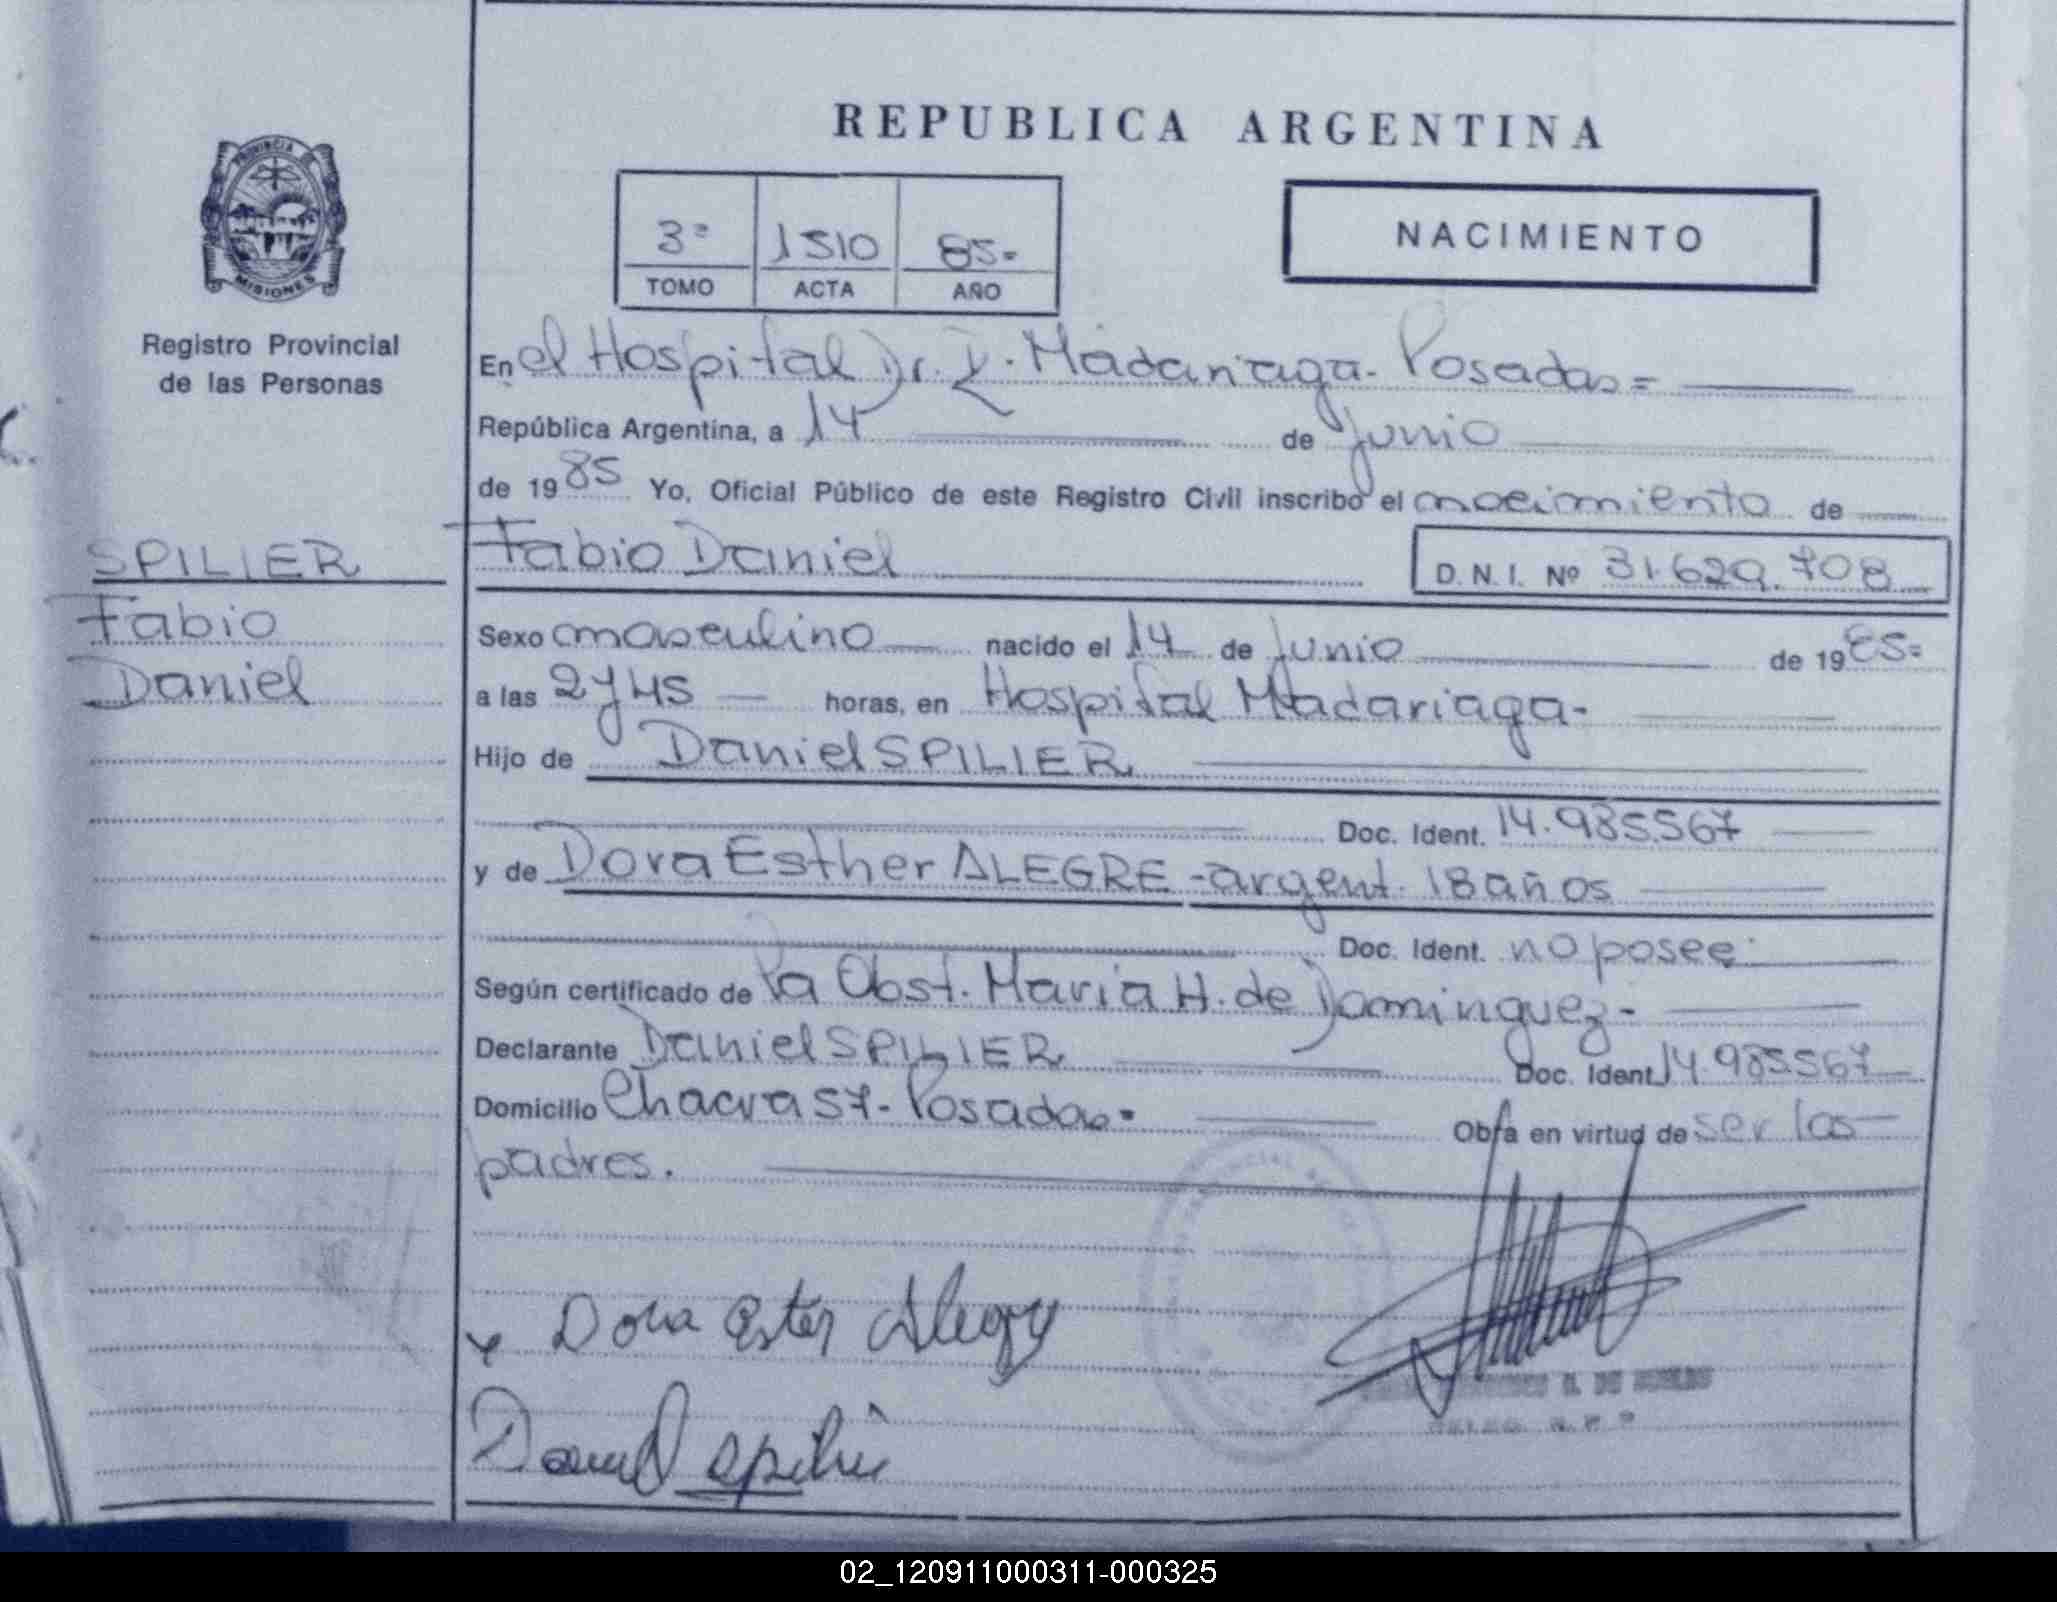 REPUBLICA ARGENTINA
PROVINCIA DE
MISIONES
Registro Provincial
de las Personas
3º 1510 85=
TOMO ACTA AÑO
NACIMIENTO
En el Hospital Dr. R. Madariaga. Posadas=
República Argentina, a 14 de Junio
de 1985 Yo, Oficial Público de este Registro Civil inscribo el nacimiento de
SPILIER
Fabio
Daniel
Fabio Daniel D.N.I. Nº 31.629.708
Sexo masculino nacido el 14 de Junio de 1985=
a las 2y45 horas, en Hospital Madariaga-
Hijo de Daniel SPILIER
Doc. Ident. 14.985.567
y de Dora Esther ALEGRE - argent. 18 años
Doc. Ident. no posee:
Según certificado de la Obst. Maria H. de Dominguez-
Declarante Daniel SPILIER Doc. Ident. 14.985.567
Domicilio Chacra 57- Posadas= Obra en virtud de ser los
padres.
Dora Ester Alegre
Daniel Spilier
02_120911000311-000325